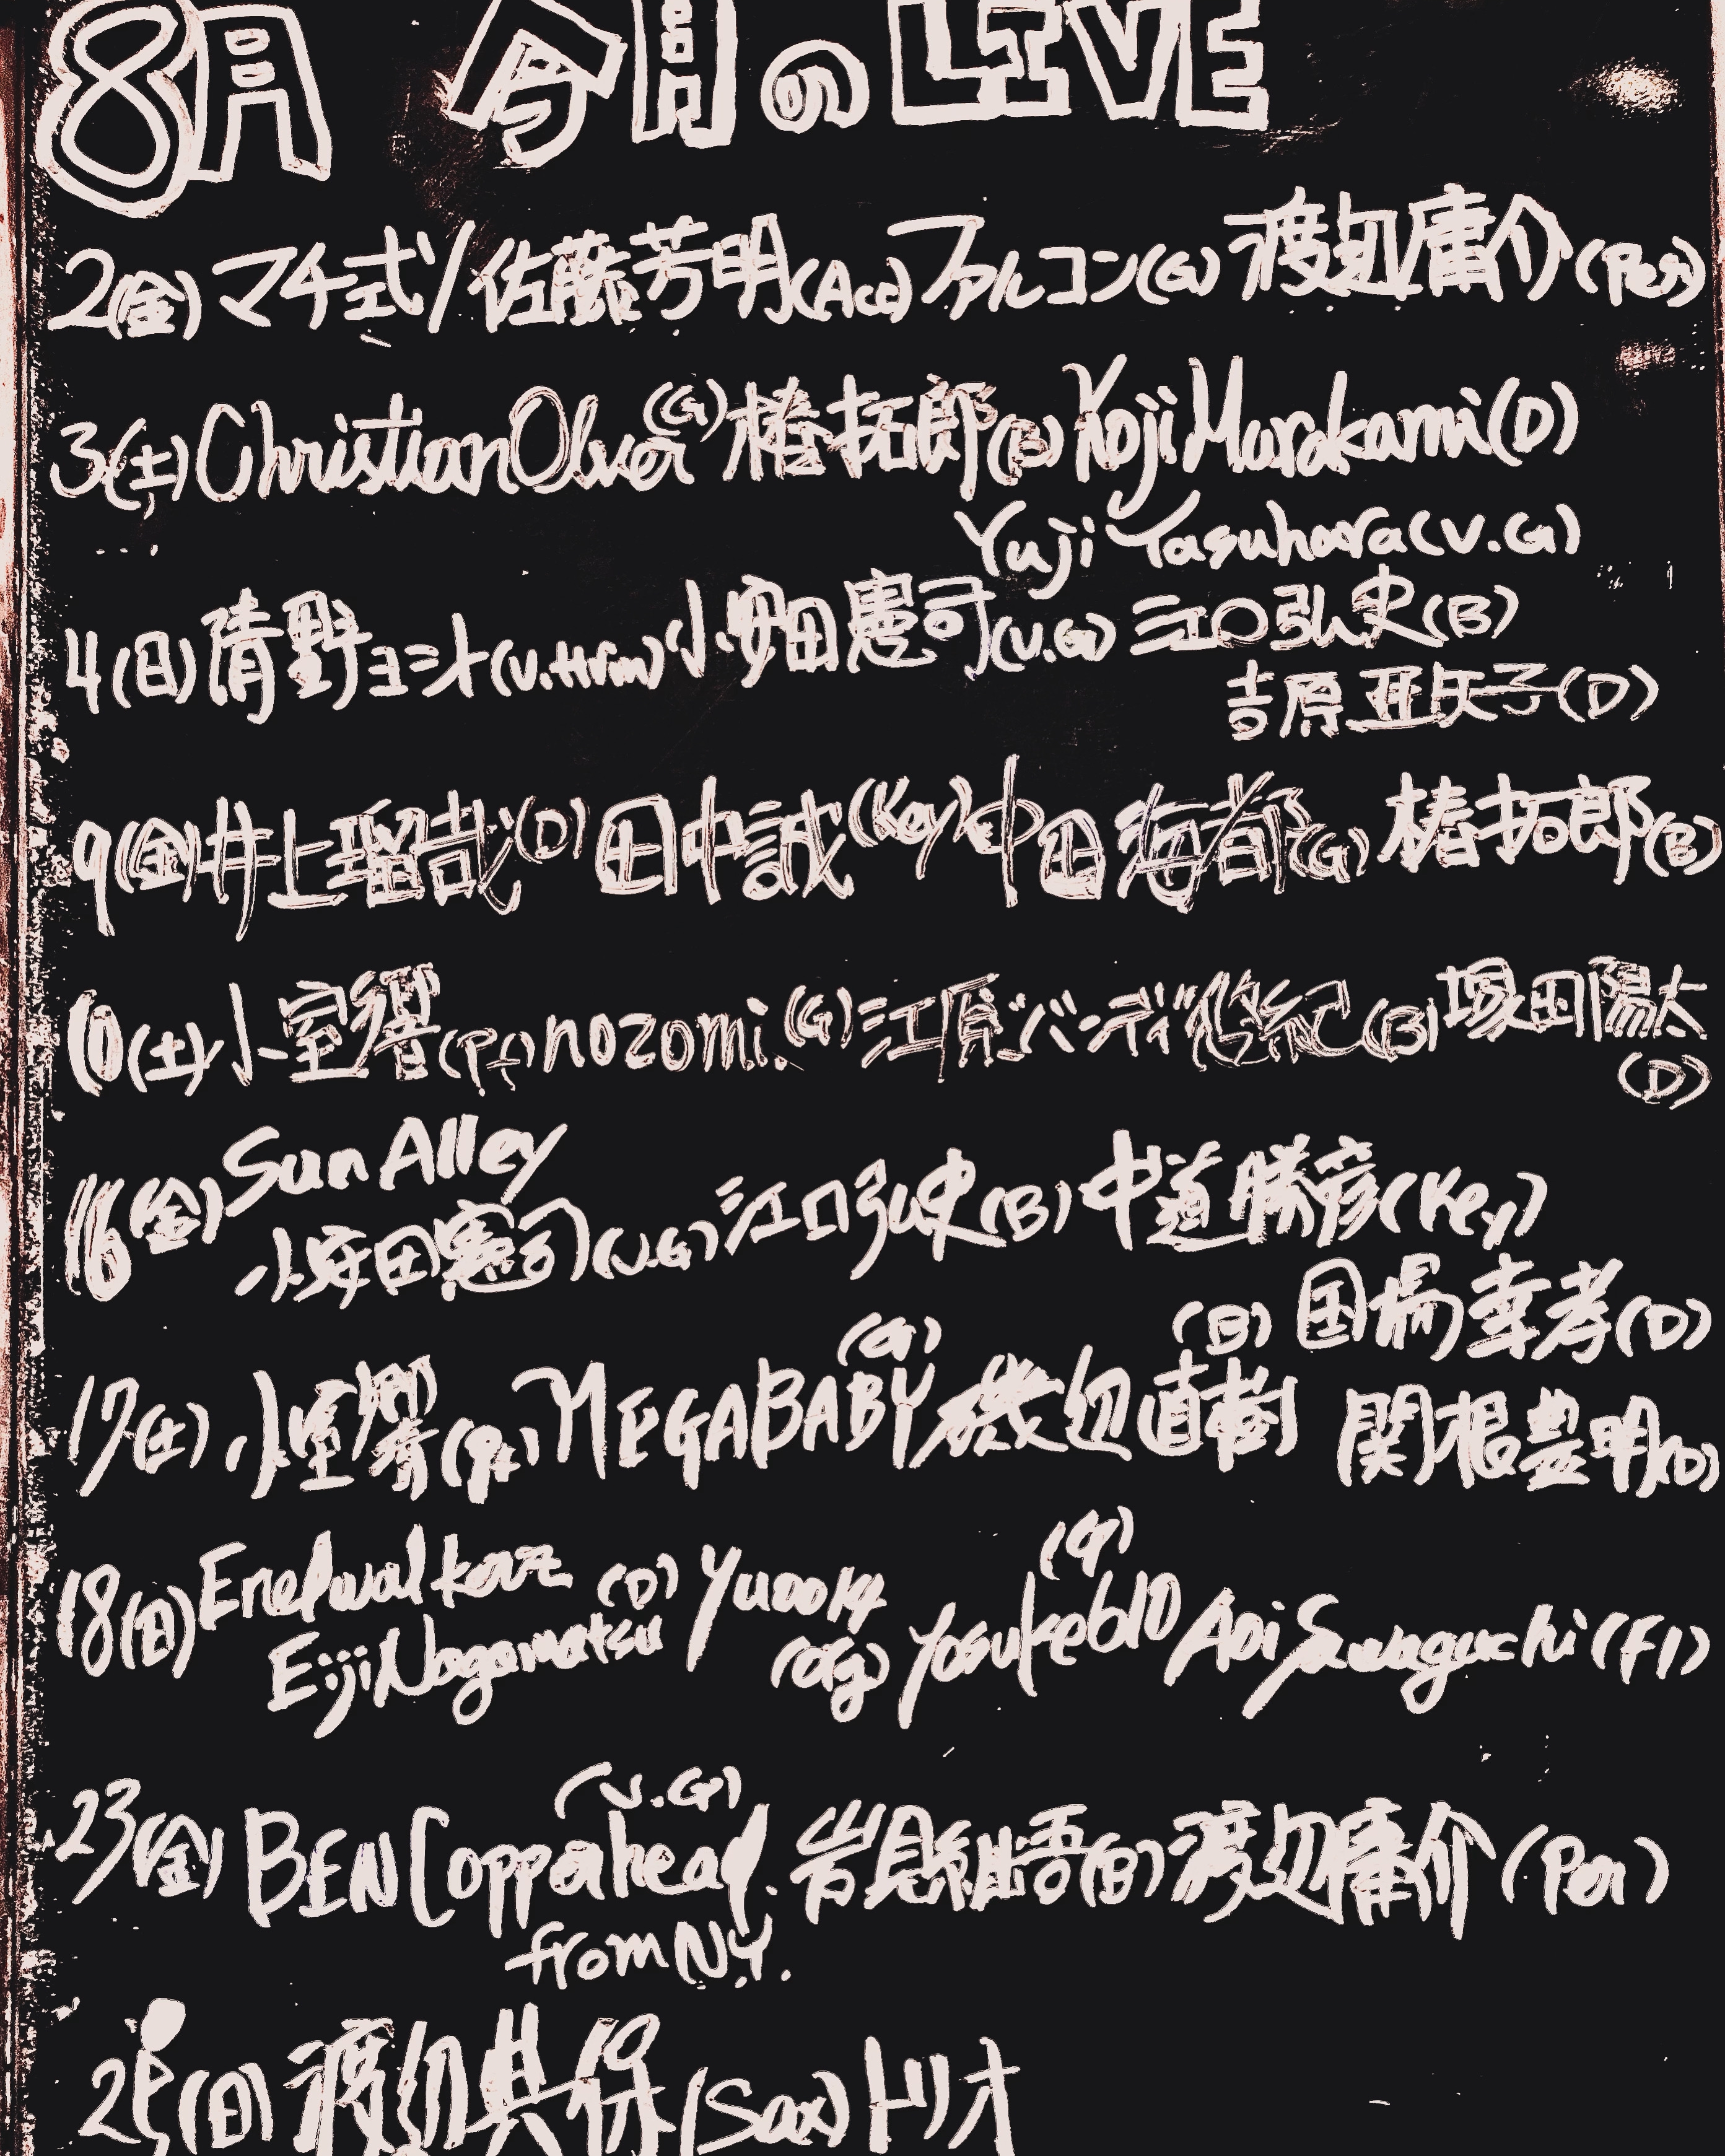 8月 今月のLIVE
2(金)マチ式/佐藤芳明(Acc)ファルコン(G)渡辺庸介(Per)
3(土)Christian Oliver(G)椿拓郎(B)Koji Murakami(D)
Yuji Yasuhara(V.G)
4(日)青野ヨシオ(V.Hrm)小安田憲司(V.G)江口弘史(B)
吉原亜矢子(D)
9(金)井上瑠哉(D)田中誠(Key)中田海都(G)椿拓郎(B)
10(土)小室響(Pf)nozomi.(G)江原"バーディ"悠紀(B)塚田陽太
(D)
16(金)Sun Alley
小安田憲司(V.G)江口弘史(B)中道勝彦(Key)
国場幸孝(D)
17(土)小室響(Pf)MEGABABY(G)磯辺直樹(B)関根豊明(D)
18(日)
Eiji Nagamatsu(D)(Org)Yosuke610(G)Aoi Sawaguchi(Fl)
23(金)BEN Copperhead(V.G)岩見継吾(B)渡辺庸介(Per)
from NY.
(日)渡辺典保(Sax)トリオ